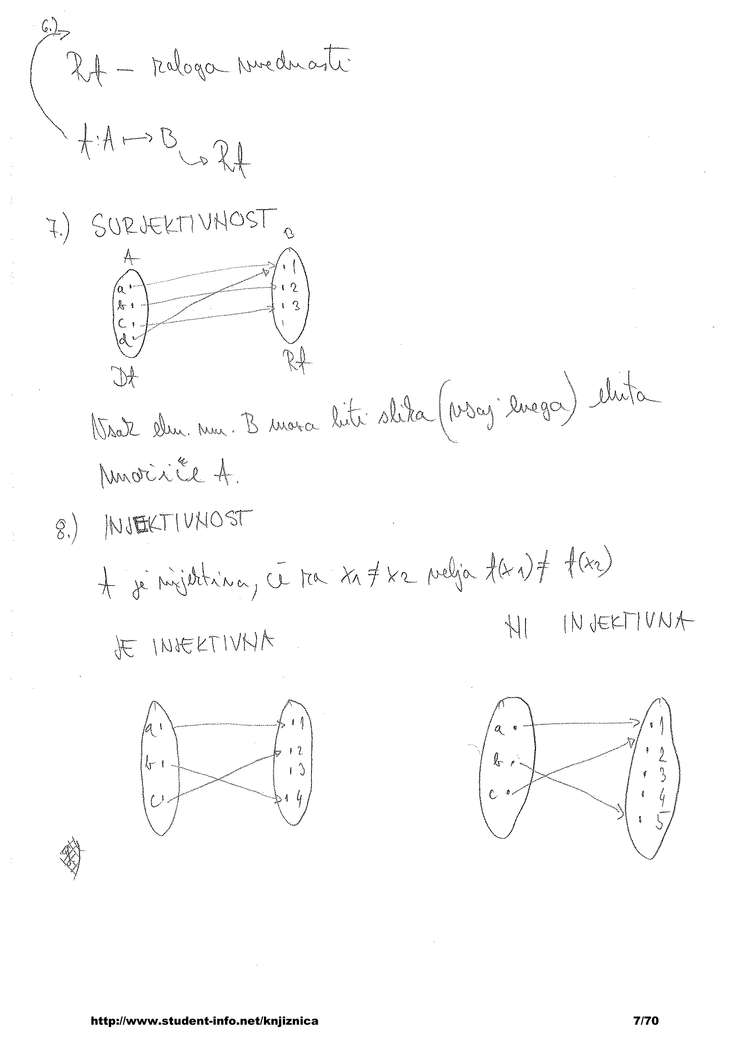 6.)
Rf – zaloga vrednosti
f: A ↦ B
↳ Rf
7.) SURJEKTIVNOST
A B
a 1
b 2
c 3
d
Df Rf
Vsak elm. mn. B mora biti slika (vsaj enega) elmta
množice A.
8.) INJEKTIVNOST
f je injektivna, če za x1 ≠ x2 velja f(x1) ≠ f(x2)
JE INJEKTIVNA NI INJEKTIVNA
a 1 a 1
2 2
b 3 b 3
c 4 c 4
5
http://www.student-info.net/knjiznica 7/70